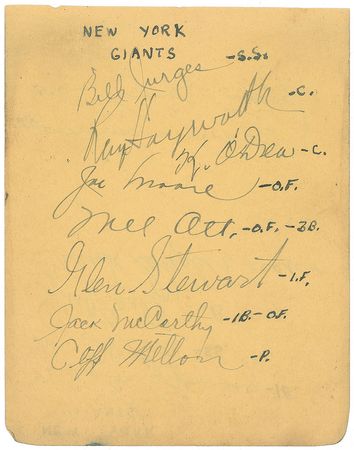 NEW YORK
GIANTS
Bill Jurges -S.S.
Ray Hayworth -C.
K. O'Dea -C.
Joe Moore -O.F.
Mel Ott. -O.F.-3B.
Glen Stewart -I.F.
Jack McCarthy -1B-OF.
Cliff Melton -P.